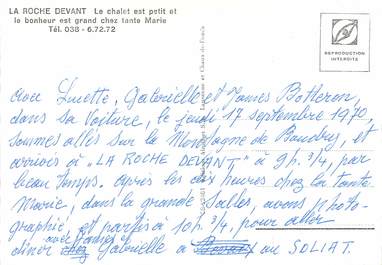 LA ROCHE DEVANT Le chalet est petit et
le bonheur est grand chez tante Marie
Tél. 038 - 6.72.72
REPRODUCTION
INTERDITE
avec Lucette, Gabrielle et James Botteron,
dans sa voiture, le jeudi 17 septembre 1970,
sommes allés sur la Montagne de Boudry, et
arrivés à "LA ROCHE DEVANT" à 9h. 3/4, par
beau temps. Après les dix heures chez la tante
Marie, dans la grande salle, avons photo-
graphié, et partis à 10h. 3/4, pour aller
dîner avec James Gabrielle à au SOLIAT.